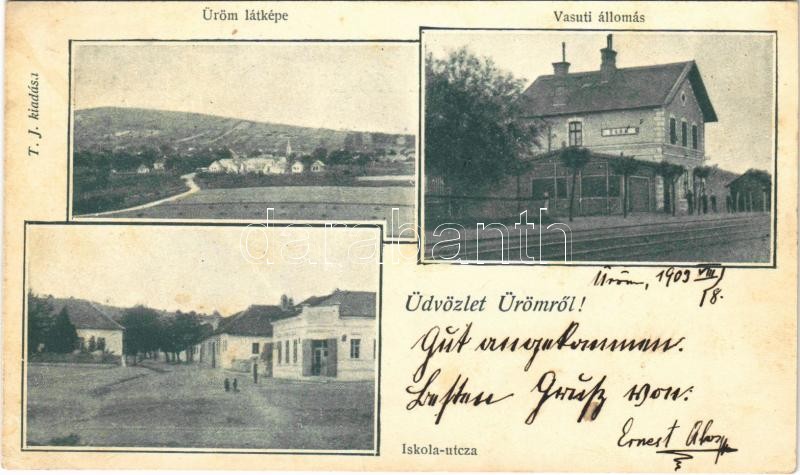 Üröm látképe
Vasuti állomás
T. J. kiadása
ÜRÖM
darabanth.com
Üröm, 1903 VIII/18.
Üdvözlet Ürömről!
Gut angekommen.
Besten Grusz von:
Ernest
Iskola-utcza